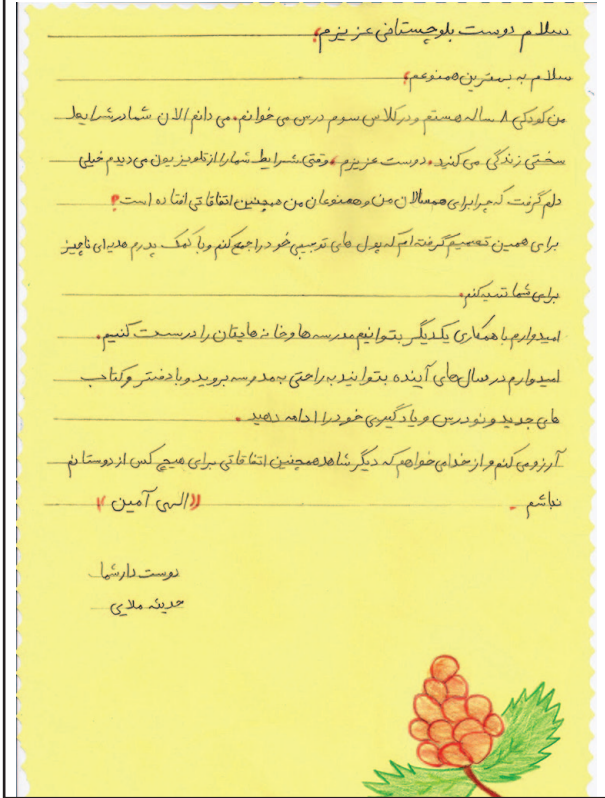 سلام دوست بلوچستانی عزیزم،
سلام به بهترین همنوعم،
من کودکی ۸ ساله هستم و در کلاس سوم درس می خوانم. می دانم الان شما در شرایط
سختی زندگی می کنید. دوست عزیزم، وقتی شرایط شما را از تلویزیون می دیدم خیلی
دلم گرفت که چرا برای همسالان من و همنوعان من همچنین اتفاقاتی افتاده است؟
برای همین تصمیم گرفته ام که پول های توجیبی خود را جمع کنم و با کمک پدرم هدیه ای ناچیز
برای شما تهیه کنم.
امیدوارم با همکاری یکدیگر بتوانیم مدرسه ها و خانه هایتان را درست کنیم.
امیدوارم در سال های آینده بتوانید به راحتی به مدرسه بروید و با دفتر و کتاب
های جدید و نو درس و یادگیری خود را ادامه دهید.
آرزو می کنم و از خدا می خواهم که دیگر شاهد همچنین اتفاقاتی برای هیچ کس از دوستانم
نباشم. ((الهی آمین))
دوست دار شما
حدیثه ملایی